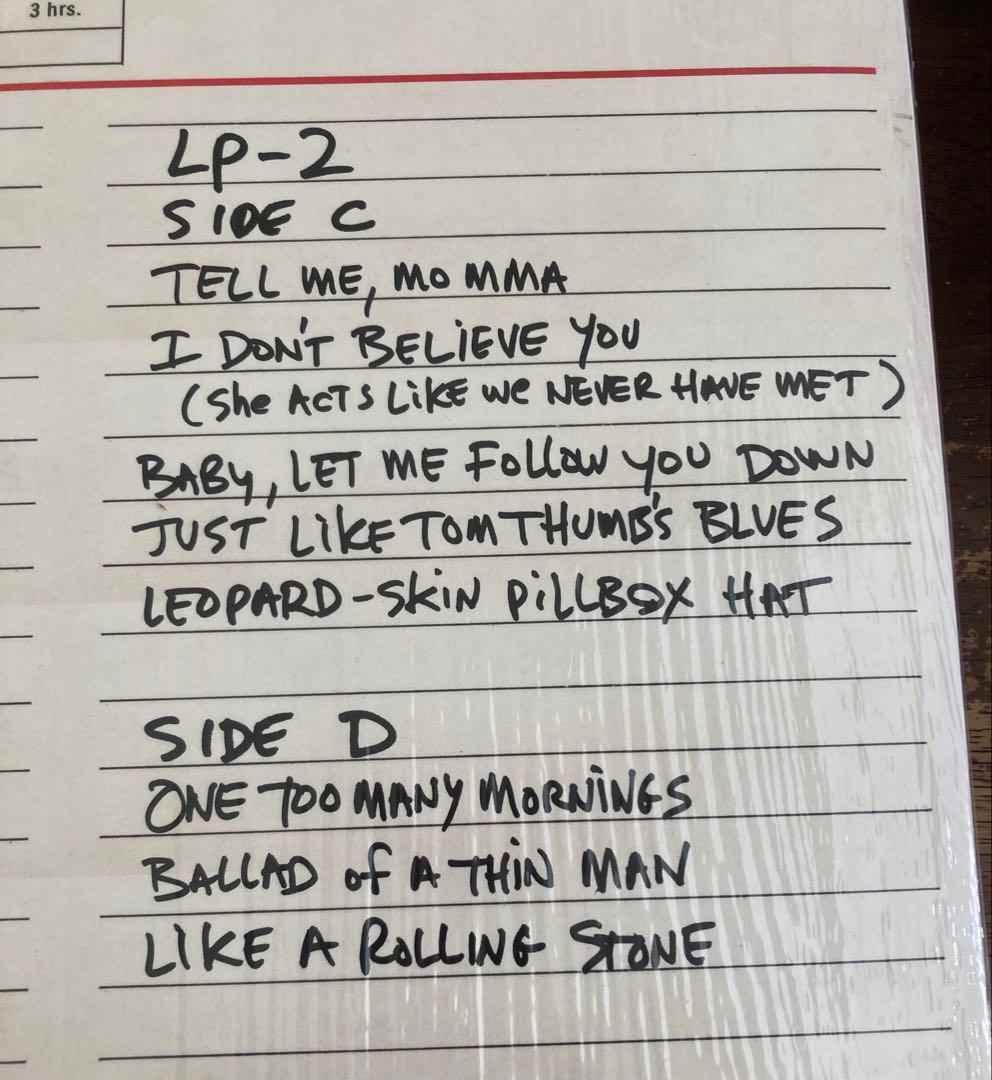 3 hrs.
LP-2
SIDE C
TELL ME, MOMMA
I DON'T BELiEVE YOU
(She ACTS LiKE We NEVER HAVE MET)
BABY, LET ME Follow you DOWN
JUST LiKE TOM THUMB'S BLUES
LEOPARD-SKiN PiLLBOX HAT
SIDE D
ONE TOO MANY MORNiNGS
BALLAD of A THiN MAN
LIKE A ROLLING STONE